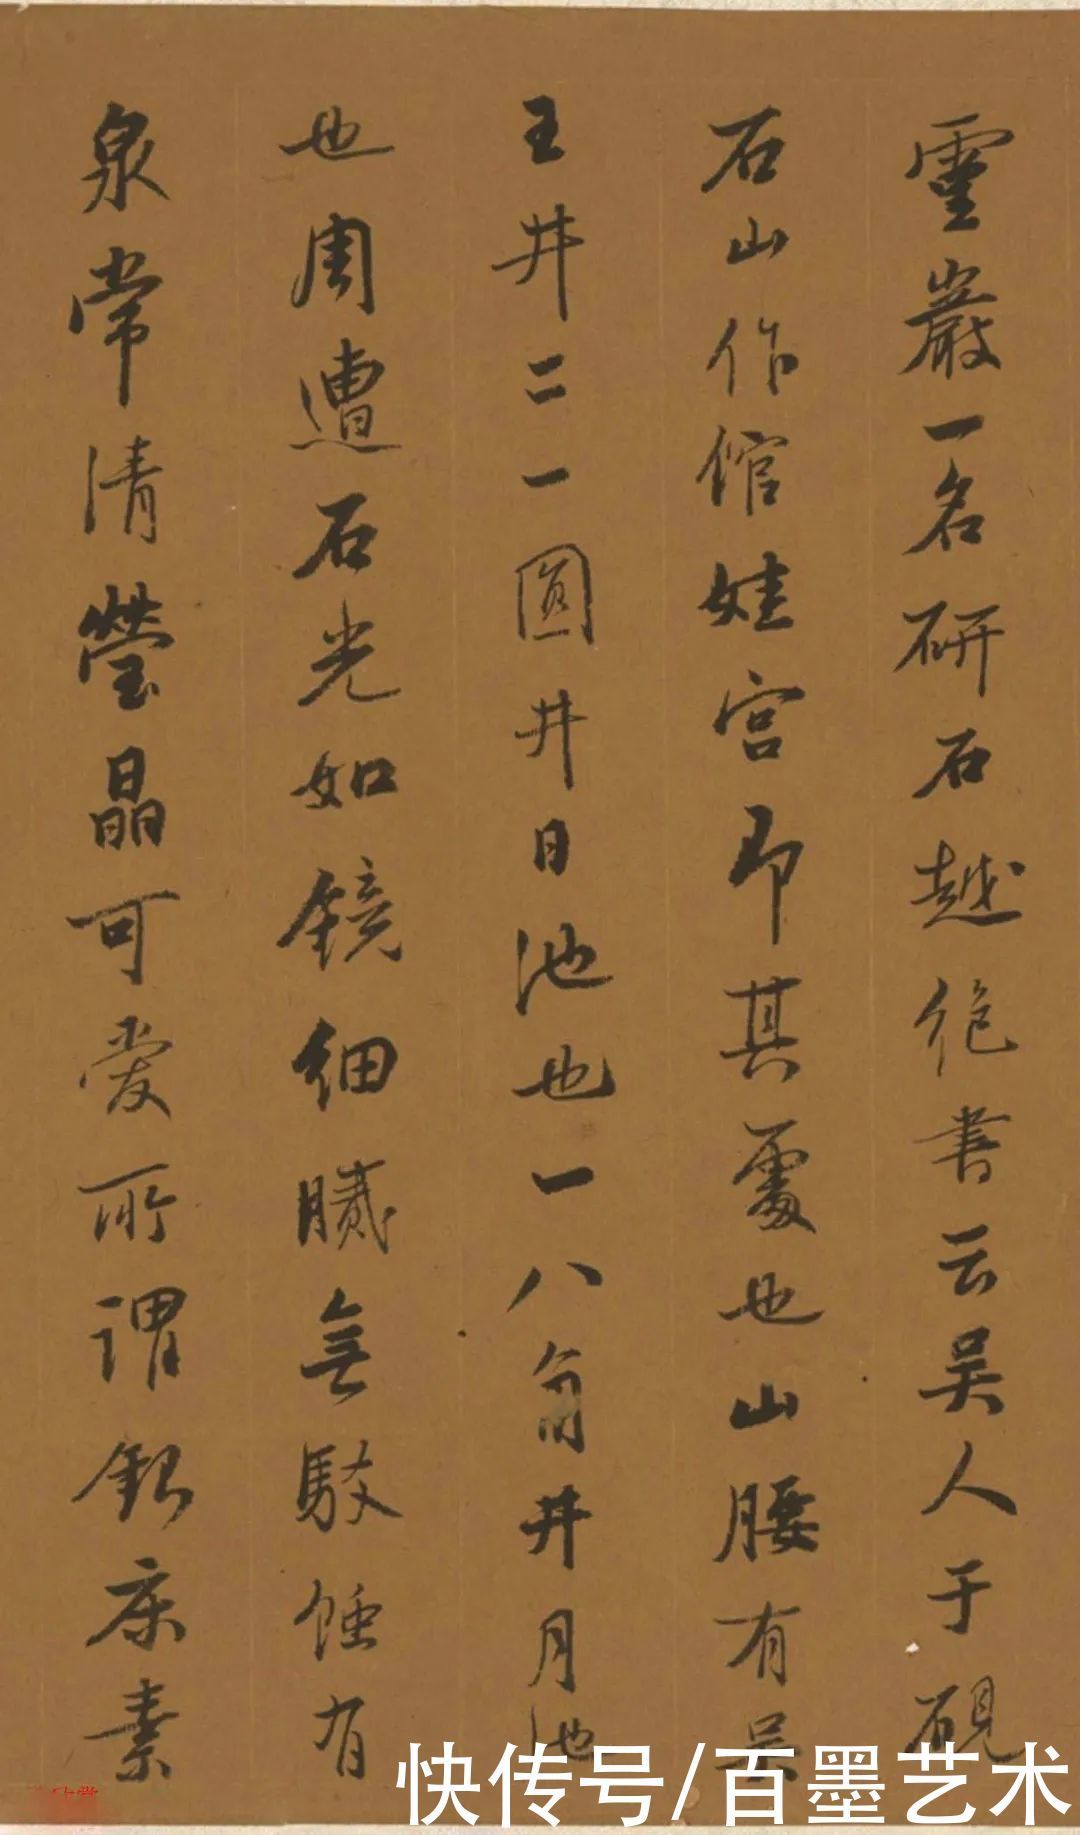 靈巖一名研石越絶書云吴人于硯
石山作館娃宫即其處也山腰有吴
王井二一圓井日池也一八角井月池
也周遭石光如鏡細膩無駁蝕有
泉常清瑩晶可愛所謂銀床素
快传号/百墨艺术